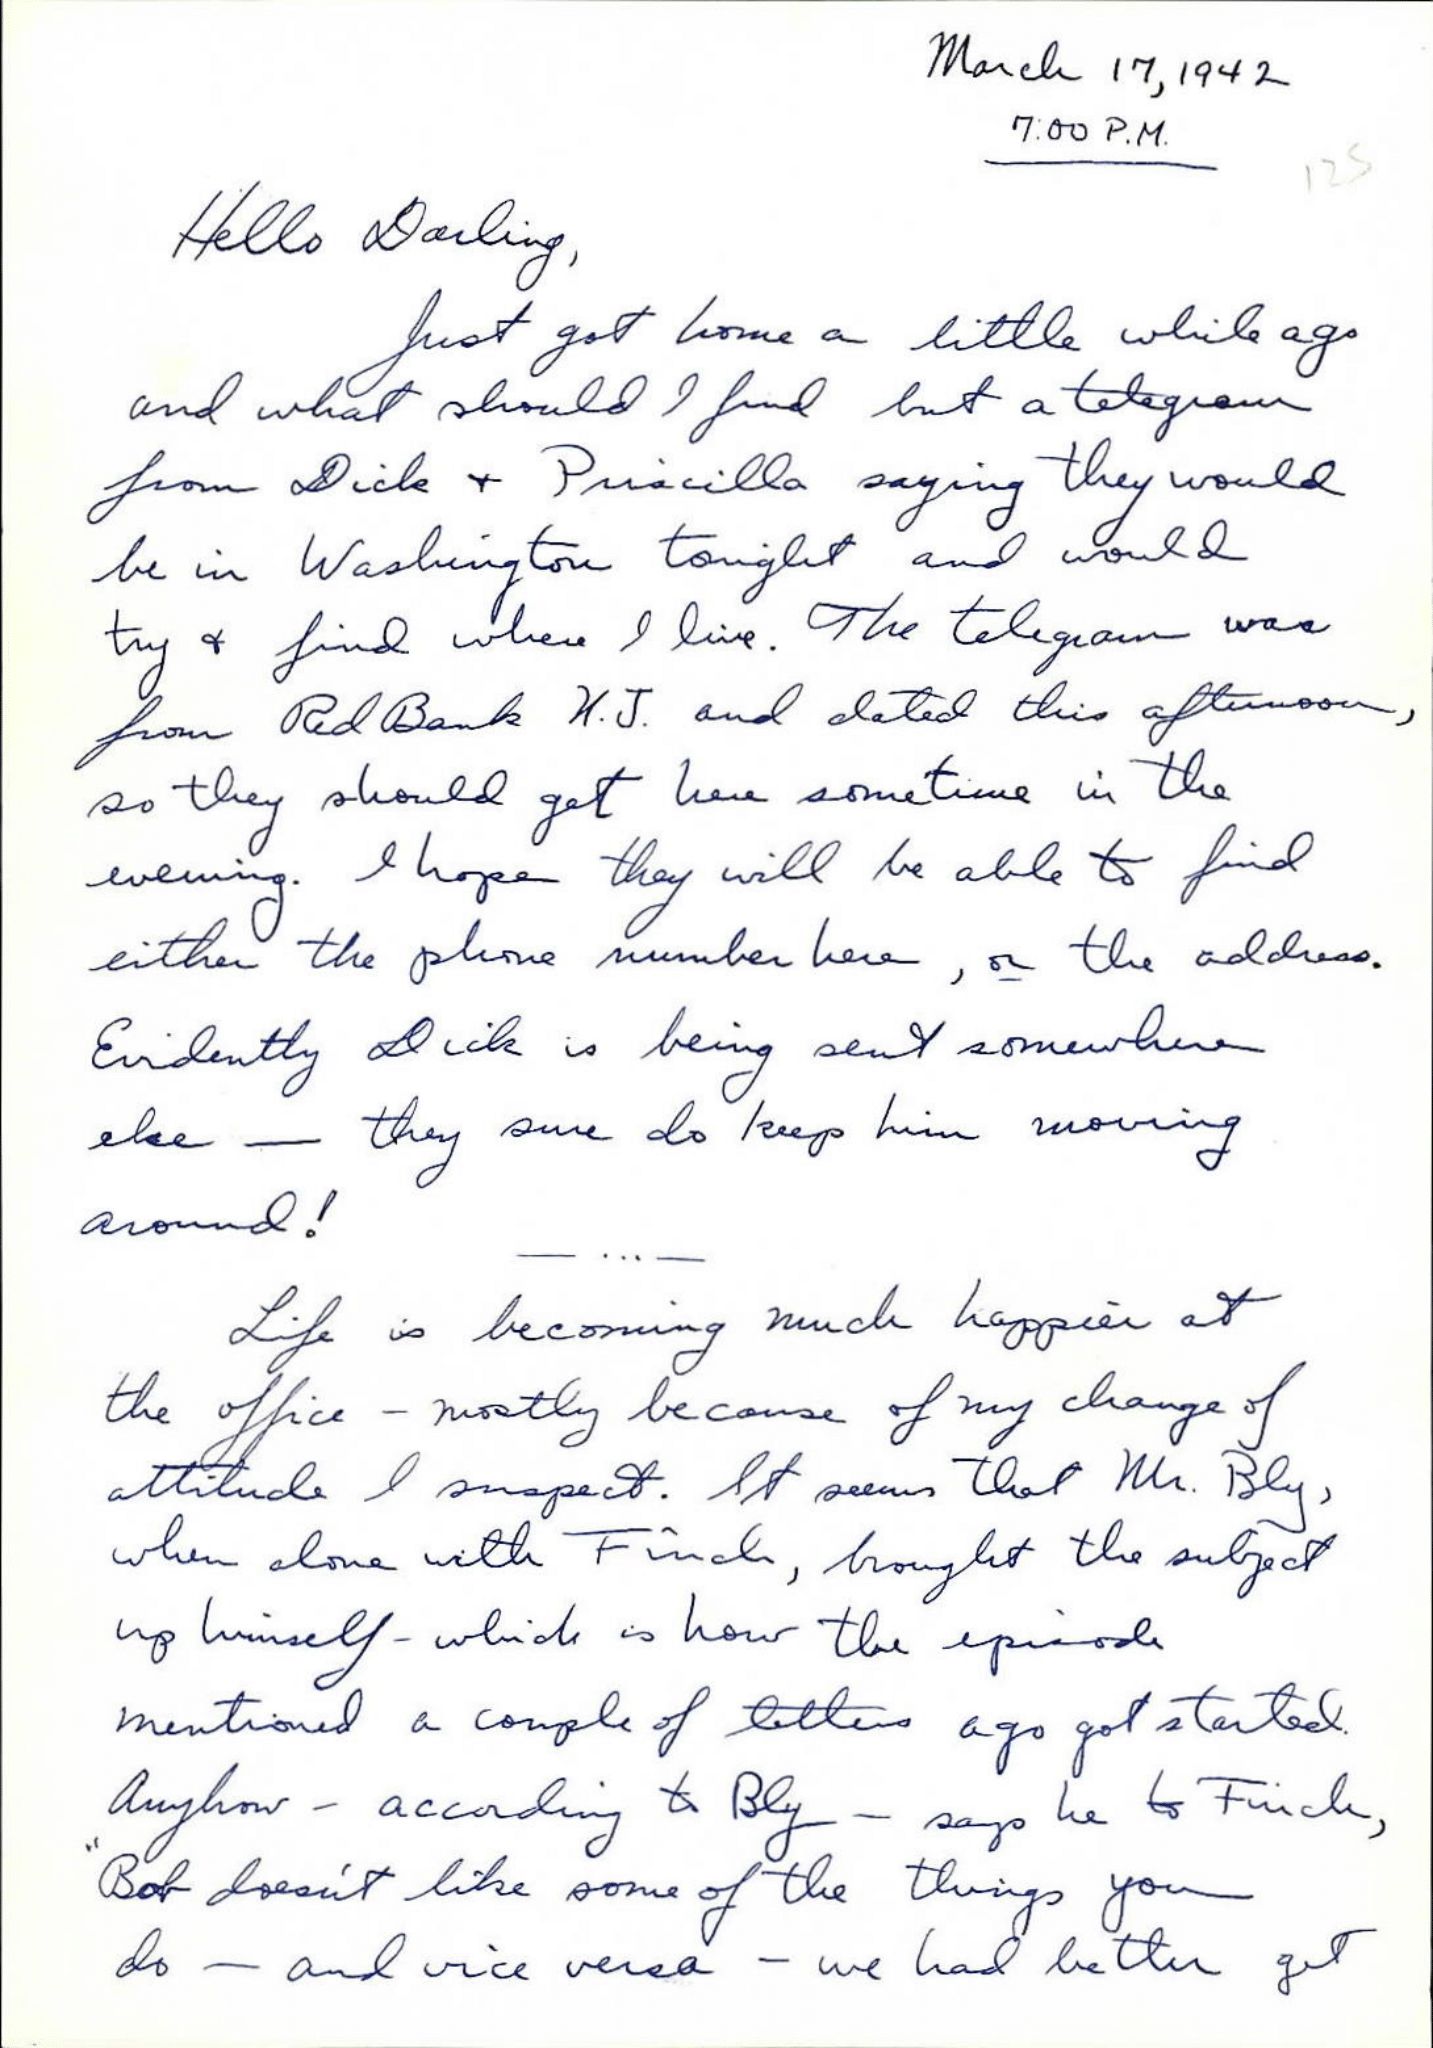 March 17, 1942
7:00 P.M.
125
Hello Darling,
Just got home a little while ago
and what should I find but a telegram
from Dick + Priscilla saying they would
be in Washington tonight and would
try & find where I live. The telegram was
from Red Bank N.J. and dated this afternoon,
so they should get here sometime in the
evening. I hope they will be able to find
either the phone number here, or the address.
Evidently Dick is being sent somewhere
else — they sure do keep him moving
around!
— ... —
Life is becoming much happier at
the office - mostly because of my change of
attitude I suspect. It seems that Mr. Bly,
when alone with Finch, brought the subject
up himself - which is how the episode
mentioned a couple of letters ago got started.
Anyhow - according to Bly - says he to Finch,
"Bob doesn't like some of the things you
do — and vice versa - we had better get